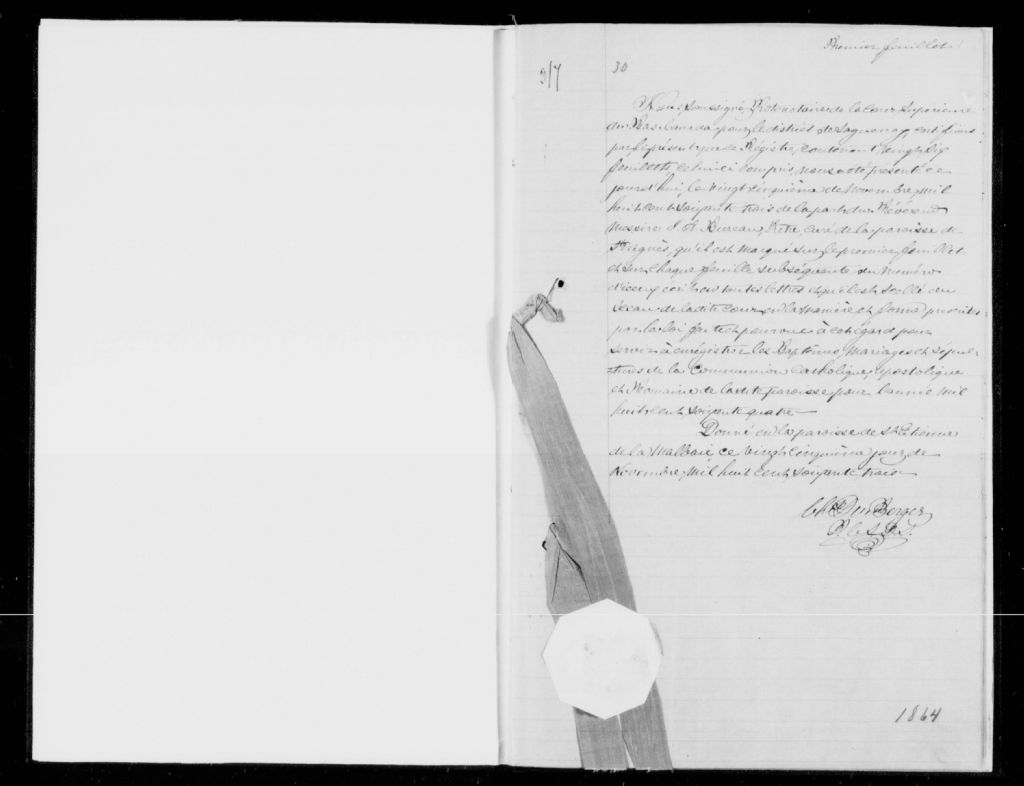 Premier feuillet
317 30
Nous, soussigné, Protonotaire de la Cour Supérieure
du Bas Canada pour le district de Saguenay, certifions
par le présent que ce Régistre, contenant vingt dix
feuillets celui ci compris, nous a été présenté ce
jourd'hui, le vingt cinquième de Novembre, mil
huit cent soixante trois de la part du Révérend
Messire J. Bureau, Ptre, curé de la paroisse de
St Agnès, qu'il est marqué sur le premier feuillet
et sur chaque feuille subséquente du Numéro
d'iceux écrit en toutes lettres et qu'il est scellé du
sceau de la dite Cour en la manière et forme prescrites
par la loi faite et pourvue à cet égard pour
servir à enrégistrer les Baptêmes, Mariages et Sépul-
tures de la Communion Catholique, apostolique
et Romaine de la dite paroisse pour l'année mil
huit cent soixante quatre
Donné en la paroisse de St Etienne
de la Malbaie, ce vingt cinquième jour de
Novembre, Mil huit cent soixante trois
Chs Du Berger
P. C. S. D. S.
1864